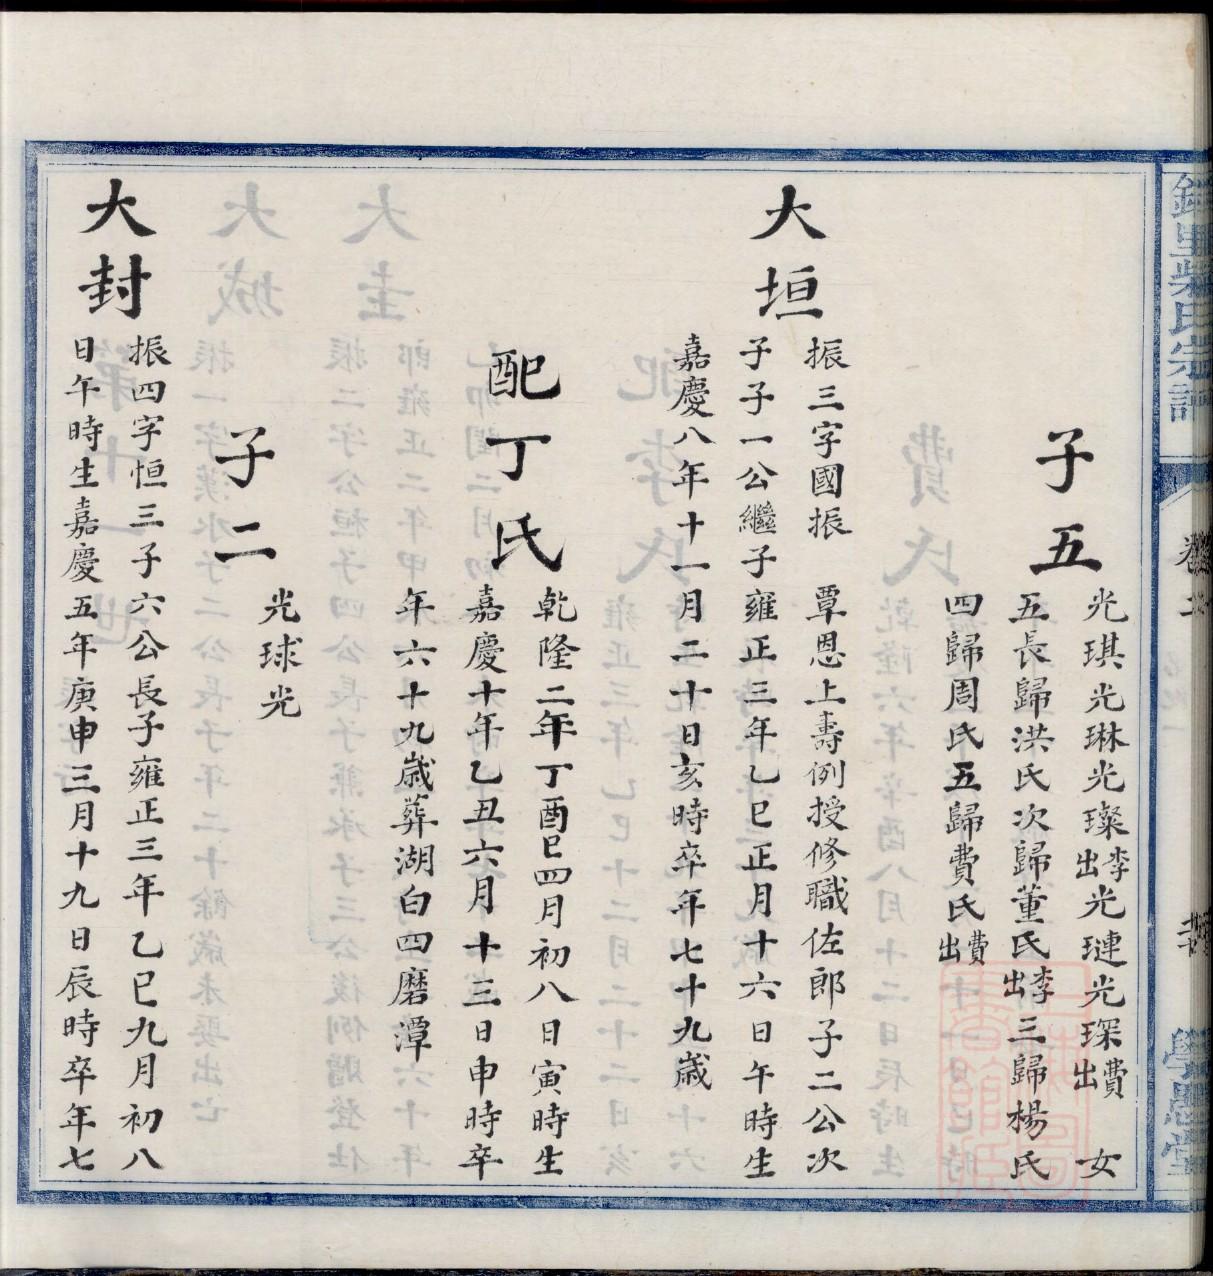 子五
光琪光琳光璨李出光璉光琛費出 女
五長歸洪氏次歸董氏李出三歸楊氏
四歸周氏五歸費氏費出
大垣
振三字國振 覃恩上壽例授修職佐郎子二公次
子子一公繼子雍正三年乙巳正月十六日午時生
嘉慶八年十一月二十日亥時卒年七十九歲
配丁氏
乾隆二年丁酉巳四月初八日寅時生
嘉慶十年乙丑六月十三日申時卒
年六十九歲葬湖白四磨潭
子二
光球光
大封
振四字恒三子六公長子雍正三年乙巳九月初八
日午時生嘉慶五年庚申三月十九日辰時卒年七
柴氏宗譜
卷二
學思堂